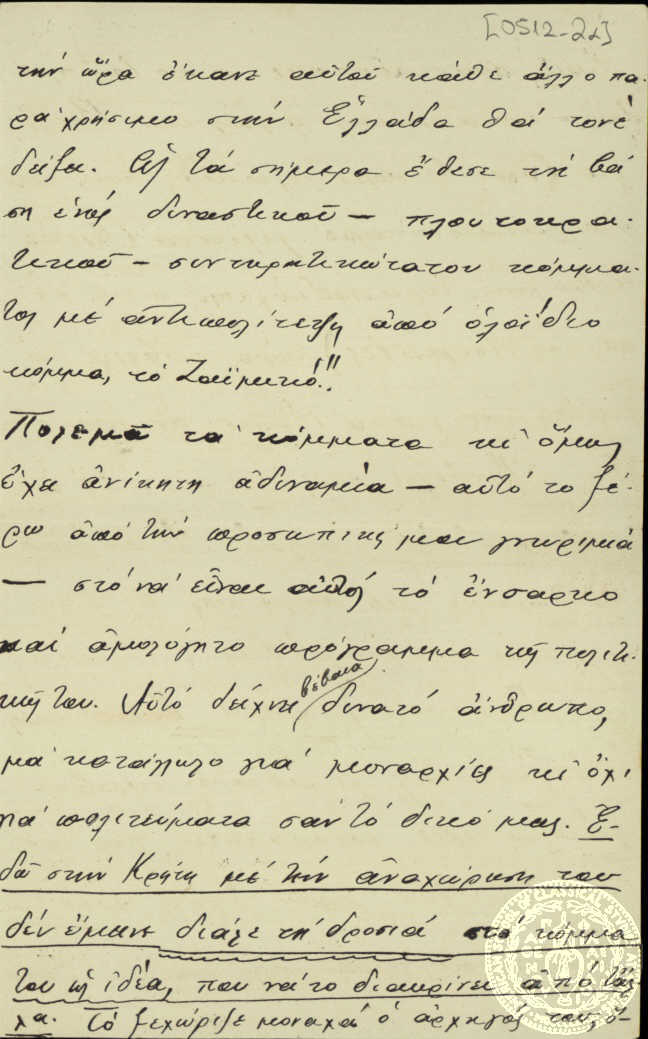 [0512-22]
τὴν ὥρα ἔκανε αὐτοῦ κάθε ἄλλο πα-
ρὰ χρήσιμο στὴν Ἑλλάδα θὰ τονὲ
δείξει. Ὣς τὰ σήμερα ἔθεσε τὴ βά
ση ἑνὸς δυναστικοῦ — πλουτοκρα-
τικοῦ — συντηρητικώτατου κόμμα-
τος μὲ ἀντιπολίτεψη ἀπὸ ὁλοΐδιο
κόμμα, τὸ Ζαϊμικό!!
Πολεμᾶ τὰ κόμματα κι᾽ ὅμως
ἔχει ἀνίκητη ἀδυναμία — αὐτὸ τὸ ξέ-
ρω ἀπὸ τὴν προσωπική μου γνωριμιὰ
— στὸ νὰ εἶναι αὐτὸς τὸ ἔνσαρκο
καὶ ἀμολόγητο πρόγραμμα τῆς πολιτι-
κῆς του. Αὐτὸ δείχνει βέβαια δυνατὸ ἄνθρωπο,
μὰ κατάλληλο γιὰ μοναρχίες κι᾽ ὄχι
γιὰ πολιτεύματα σὰν τὸ δικό μας. Ἐ-
δῶ στὴν Κρήτη μὲ τὴν ἀναχώρηση του
δὲν ἔμεινε διόλε τὴ δροσιὰ στὸ κόμμα
του ἡ ἰδέα, ποὺ νὰ τὸ διακρίνει ἀπὸ τἄλ
λα. Τὸ ξεχώριζε μοναχὰ ὁ ἀρχηγός του, ὁ-